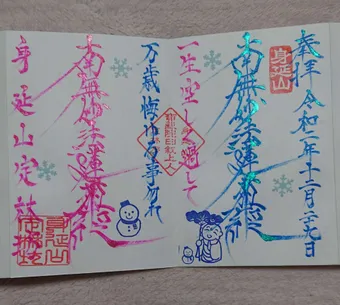 奉拝 令和二年十二月
身延山
南無妙法蓮華経
一生空しく過して
万歳悔ゆる事勿れ
南無妙法蓮華経
身延山定林坊
身延山
定林坊